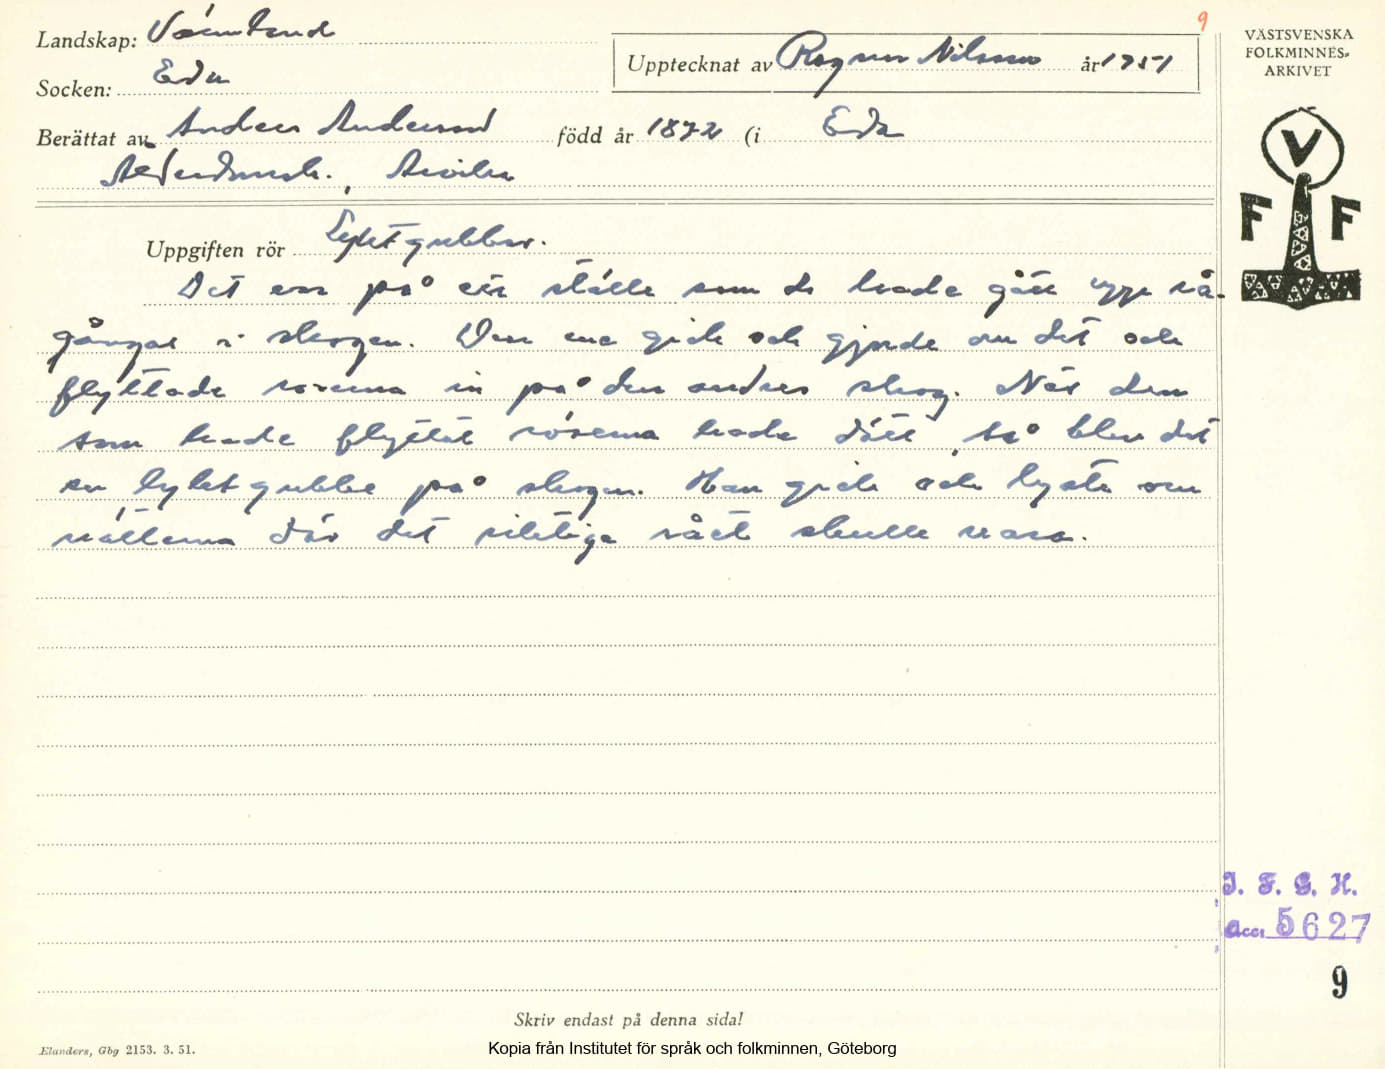 9
Landskap: Värmland
Upptecknat av Ragnar Nilsson år 1951
VÄSTSVENSKA
FOLKMINNES-
ARKIVET
Socken: Eda
Berättat av Anders Andersson född år 1872 (i Eda
Ålderdomsh., Arvika
V
F F
Uppgiften rör Lyktgubbar.
Det var på ett ställe som de hade gått upp rå-
gångar i skogen. Den ene gick och gjorde om det och
flyttade rösena in på den andres skog. När den
som hade flyttat rösena hade dött, så blev det
en lyktgubbe på skogen. Han gick och lyste om
nätterna där det riktiga rået skulle vara.
I. F. G. H.
Acc: 5627
9
Skriv endast på denna sida!
Elanders, Gbg 2153. 3. 51.
Kopia från Institutet för språk och folkminnen, Göteborg